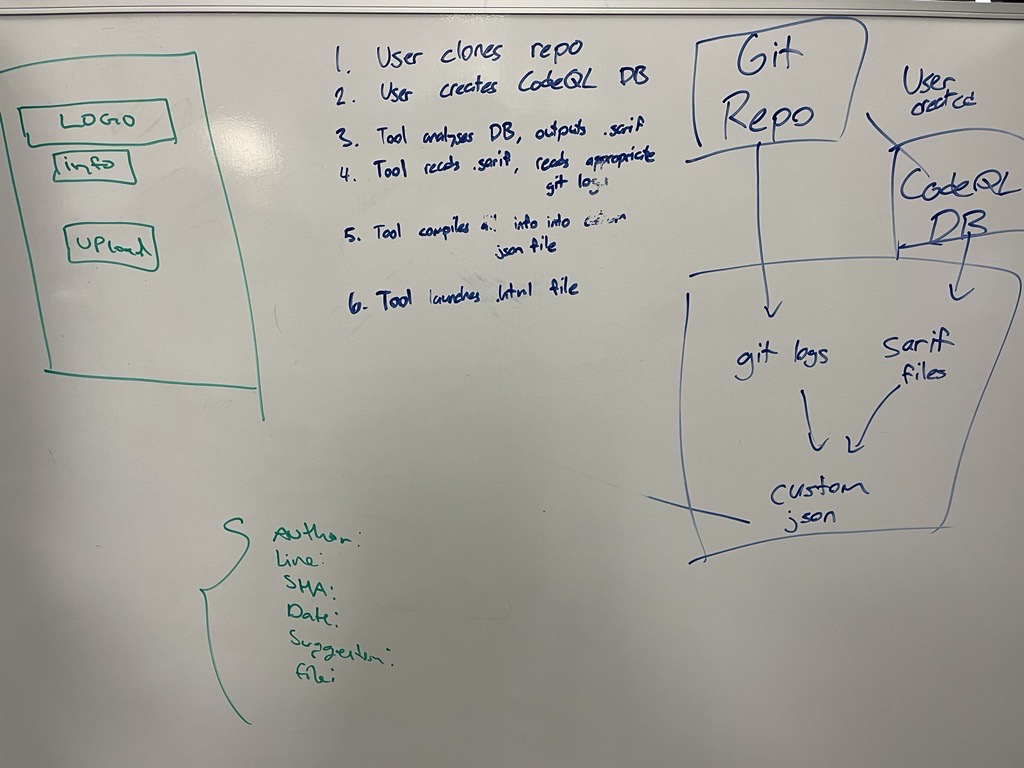 LOGO
info
Upload
1. User clones repo
2. User creates CodeQL DB
3. Tool analyses DB, outputs .sarif
4. Tool reads .sarif, reads appropriate
git logs
5. Tool compiles all info into custom
json file
6. Tool launches .html file
Git
Repo
User
created
CodeQL
DB
git logs
sarif
files
custom
json
{
Author:
Line:
SHA:
Date:
Suggestion:
file: